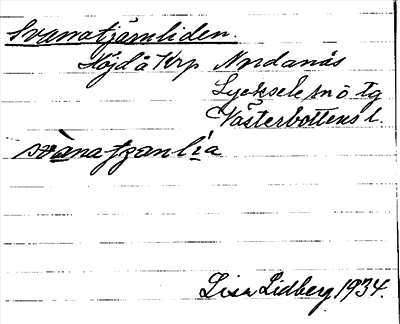 Svanatjärnliden.
Höjd å Krp Nordanås
Lycksele sn o tg
Västerbottens l.
svànatjænlìa
Lisa Lidberg 1934.